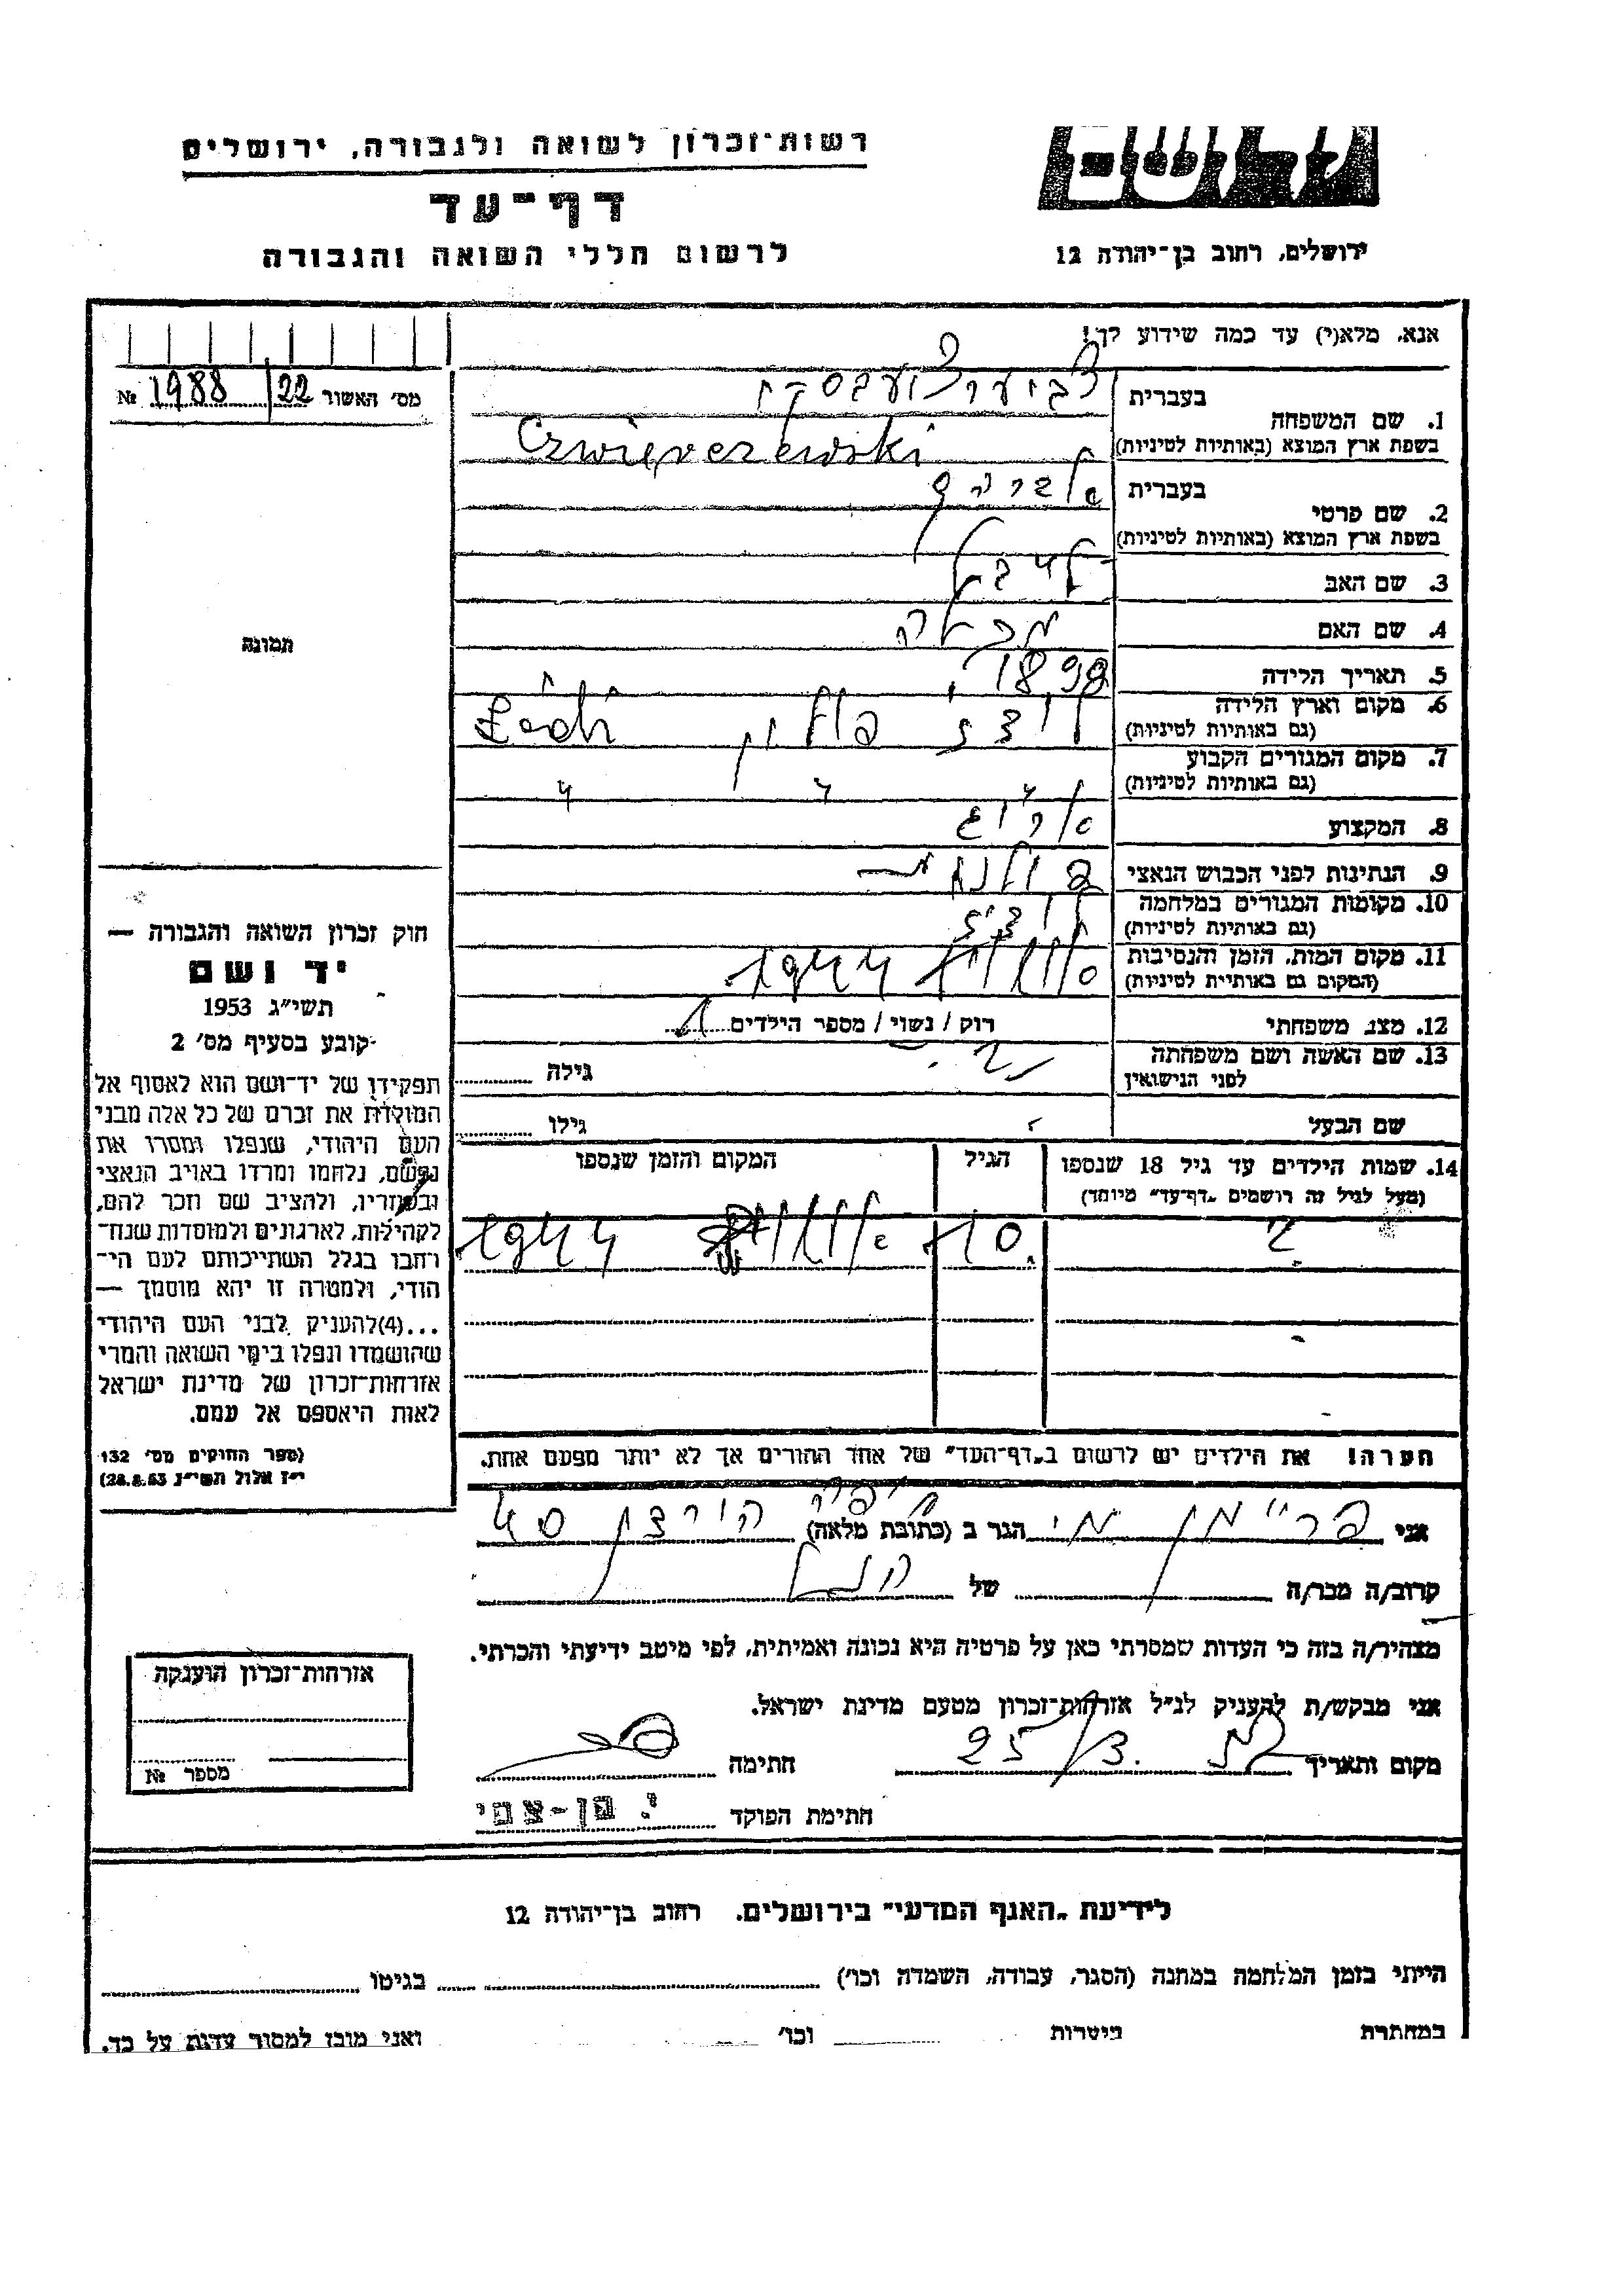 ושם
רשות־זכרון לשואה ולגבורה, ירושלים
דף־עד
לרשום חללי השואה והגבורה
ירושלים, רחוב בן־יהודה 12
אנא, מלא(י) עד כמה שידוע לך!
מס׳ האשור 22 1988 №
תמונה
1. שם המשפחה
בעברית
בשפת ארץ המוצא (באותיות לטיניות) Czwięrczewski
2. שם פרטי
בעברית אברהם
בשפת ארץ המוצא (באותיות לטיניות)
3. שם האב לייבל
4. שם האם
5. תאריך הלידה 1898
6. מקום וארץ הלידה לודז פולין Łódź
(גם באותיות לטיניות)
7. מקום המגורים הקבוע " " "
(גם באותיות לטיניות)
8. המקצוע אורג
9. הנתינות לפני הכבוש הנאצי פולנית
10. מקומות המגורים במלחמה לודז
(גם באותיות לטיניות)
11. מקום המות, הזמן והנסיבות 1944
(המקום גם באותיות לטיניות)
12. מצב משפחתי רוק / נשוי / מספר הילדים 1
13. שם האשה ושם משפחתה
לפני הנישואין
גילה
שם הבעל
גילו
14. שמות הילדים עד גיל 18 שנספו
(מעל לגיל זה רושמים „דף־עד״ מיוחד)
הגיל
המקום והזמן שנספו
? 10 1944
הערה! את הילדים יש לרשום ב„דף־העד״ של אחד ההורים אך לא יותר מפעם אחת.
חוק זכרון השואה והגבורה —
יד ושם
תשי״ג 1953
קובע בסעיף מס׳ 2
תפקידו של יד־ושם הוא לאסוף אל
המולדת את זכרם של כל אלה מבני
העם היהודי, שנפלו ומסרו את
נפשם, נלחמו ומרדו באויב הנאצי
ובעוזריו, ולהציב שם וזכר להם,
לקהילות, לארגונים ולמוסדות שנח־
רבו בגלל השתייכותם לעם הי־
הודי, ולמטרה זו יהא מוסמך —
...(4)להעניק לבני העם היהודי
שהושמדו ונפלו בימי השואה והמרי
אזרחות־זכרון של מדינת ישראל
לאות היאספם אל עמם.
(ספר החוקים מס׳ 132
י״ז אלול תשי״ג 28.8.53)
אני פריימן הגר ב (כתובת מלאה) 40
קרוב/ה מכר/ה של הנ״ל
מצהיר/ה בזה כי העדות שמסרתי כאן על פרטיה היא נכונה ואמיתית, לפי מיטב ידיעתי והכרתי.
אני מבקש/ת להעניק לנ״ל אזרחות־זכרון מטעם מדינת ישראל.
מקום ותאריך 25/3. חתימה
חתימת הפוקד
אזרחות־זכרון הוענקה
מספר №
לידיעת „האגף המדעי״ בירושלים, רחוב בן־יהודה 12
הייתי בזמן המלחמה במחנה (הסגר, עבודה, השמדה וכו׳) בגיטו
במחתרת ביערות וכו׳ ואני מוכן למסור עדות על כך.